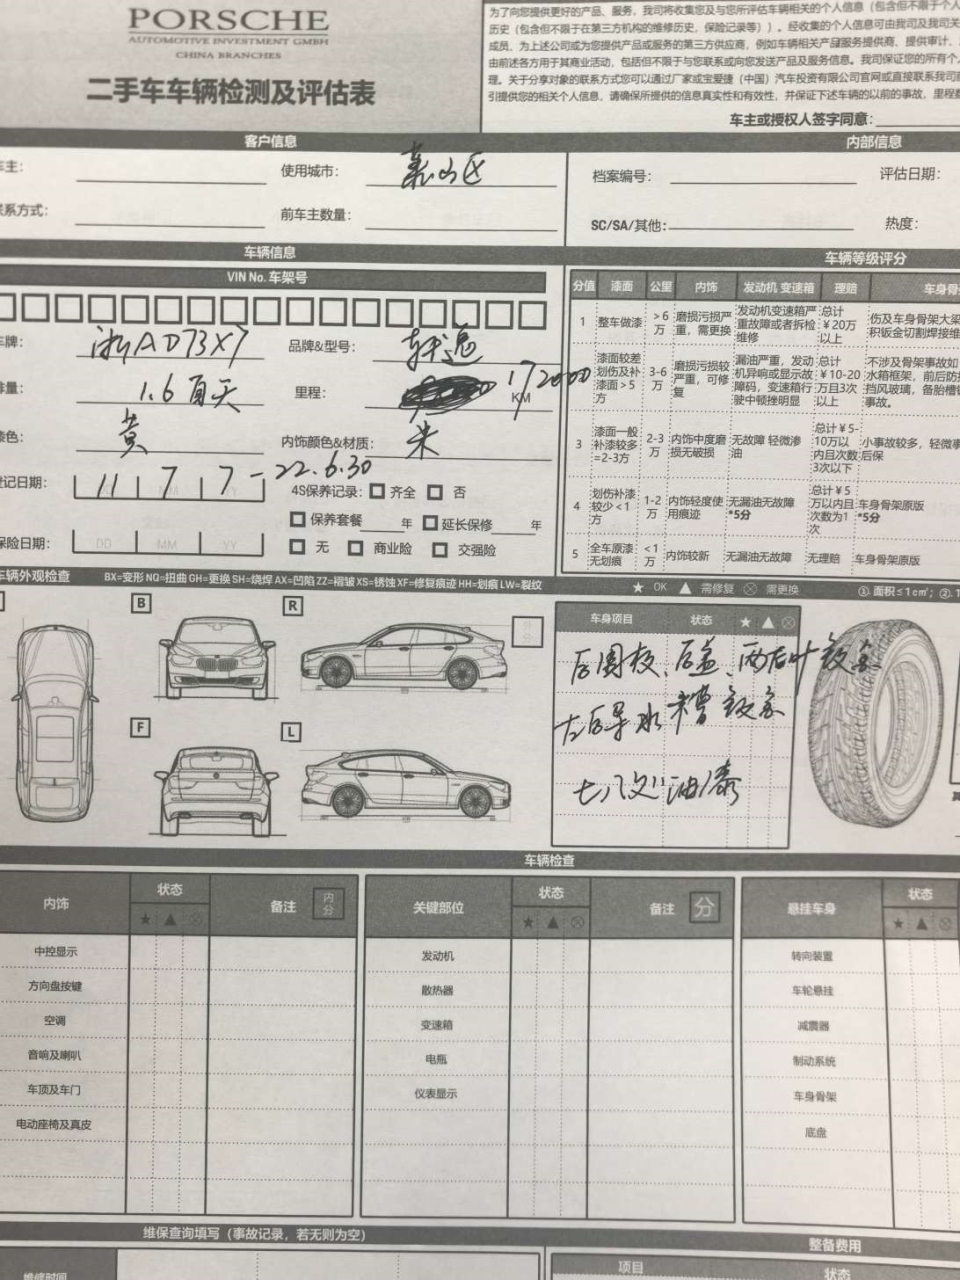 PORSCHE
AUTOMOTIVE INVESTMENT GMBH
CHINA BRANCHES
二手车车辆检测及评估表
为了向您提供更好的产品、服务，我司将收集您及与您所评估车辆相关的个人信息（包含但不限于个人
历史（包含但不限于在第三方机构的维修历史，保险记录等））。经收集的个人信息可由我司及我司关
成员、为上述公司或为您提供产品或服务的第三方供应商，例如车辆相关产品服务提供商、提供审计、
由前述各方用于其商业活动，包括但不限于与您联系或向您发送产品及服务信息。我司保证您的所有个人
理。关于分享对象的联系方式您可以通过厂家或宝爱捷（中国）汽车投资有限公司官网或直接联系我司
引提供您的相关个人信息，请确保所提供的信息真实性和有效性，并保证下述车辆的以前的事故，里程数
车主或授权人签字同意：
客户信息 内部信息
车主： 使用城市： 萧山区 档案编号： 评估日期：
联系方式： 前车主数量： SC/SA/其他: 热度：
车辆信息 车辆等级评分
VIN No. 车架号
分值 漆面 公里 内饰 发动机 变速箱 理赔 车身骨
1 整车做漆 >6万 磨损污损严重，需更换 发动机变速箱严重故障或者拆检维修 总计¥20万以上 伤及车身骨架大梁 积钣金切割焊接维
车牌： 浙AD73X7 品牌&型号： 轩逸
2 漆面较差划伤及补漆面>5方 3-6万 磨损污损较严重，可修复 漏油严重，发动机异响或显示故障码，变速箱行驶中顿挫明显 总计¥10-20万且3次以上 不涉及骨架事故如 水箱框架，前后防撞 挡风玻璃，备胎槽 事故。
排量： 1.6 里程： 172000 KM
漆色： 黄 内饰颜色&材质： 米
3 漆面一般补漆较多=2-3方 2-3万 内饰中度磨损无破损 无故障 轻微渗油 总计¥5-10万以内且次数3次以下 小事故较多，轻微事 后保
登记日期： 11 7 7-22.6.30
4S保养记录： 齐全 否
4 划伤补漆较少<1方 1-2万 内饰轻度使用痕迹 无漏油无故障 *5分 总计¥5万以内且次数为1次 车身骨架原版 *5分
保养套餐 年 延长保修 年
保险日期： DD MM YY 无 商业险 交强险
5 全车原漆无划痕 <1万 内饰较新 无漏油无故障 无理赔 车身骨架原版
车辆外观检查 BX=变形 NQ=扭曲 GH=更换 SH=烧焊 AX=凹陷 ZZ=褶皱 XS=锈蚀 XF=修复痕迹 HH=划痕 LW=裂纹 ★ OK ▲ 需修复 ⊗ 需更换 ①. 面积≤1cm²；②.
B R
车身项目 状态 ★ ▲ ⊗
后围板、后盖、两后叶钣金
左后导水槽钣金
F L
七八义油漆
车辆检查
内饰 状态 备注 内分 关键部位 状态 备注 分 悬挂车身 状态
★ ▲ ⊗ ★ ▲ ⊗ ★ ▲ ⊗
中控显示 发动机 转向装置
方向盘按键 散热器 车轮悬挂
空调 变速箱 减震器
音响及喇叭 电瓶 制动系统
车顶及车门 仪表显示 车身骨架
电动座椅及真皮 底盘
维保查询填写（事故记录，若无则为空） 整备费用
维修时间 项目 状态